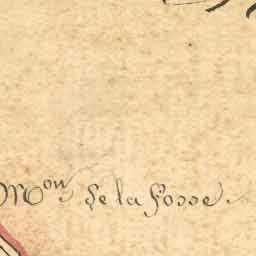 Mon de la Fosse.